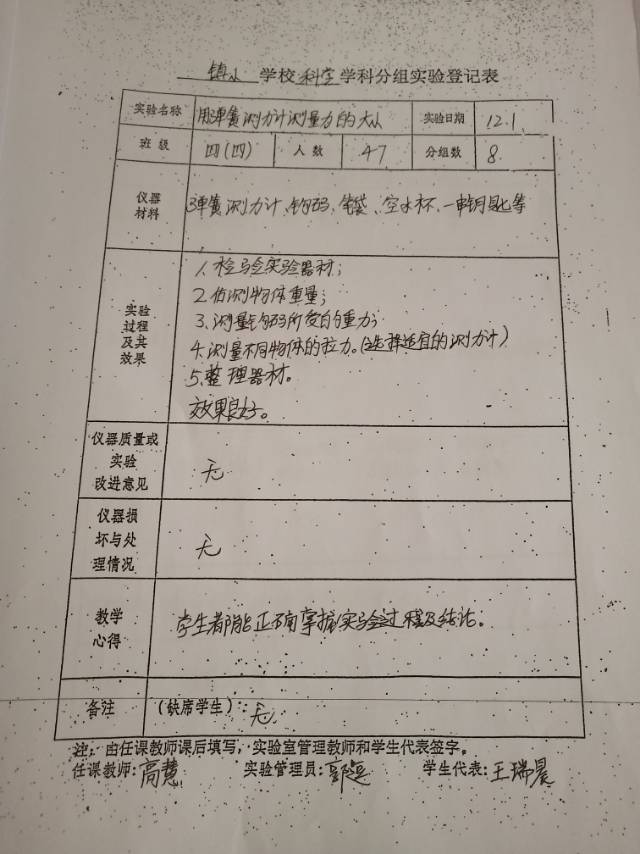 镇小 学校 科学 学科分组实验登记表
实验名称 用弹簧测力计测量力的大小 实验日期 12.1
班级 四(四) 人数 47 分组数 8
仪器材料 弹簧测力计、钩码、笔袋、空水杯、一串钥匙等
实验过程及其效果
1.检验实验器材;
2.估测物体重量;
3.测量钩码所受的重力;
4.测量不同物体的拉力。(选择适宜的测力计)
5.整理器材。
效果良好。
仪器质量或实验改进意见 无
仪器损坏与处理情况 无
教学心得 学生都能正确掌握实验过程及结论。
备注 (缺席学生):无
注:由任课教师课后填写,实验室管理教师和学生代表签字。
任课教师:高慧 实验管理员: 学生代表:王瑞晨